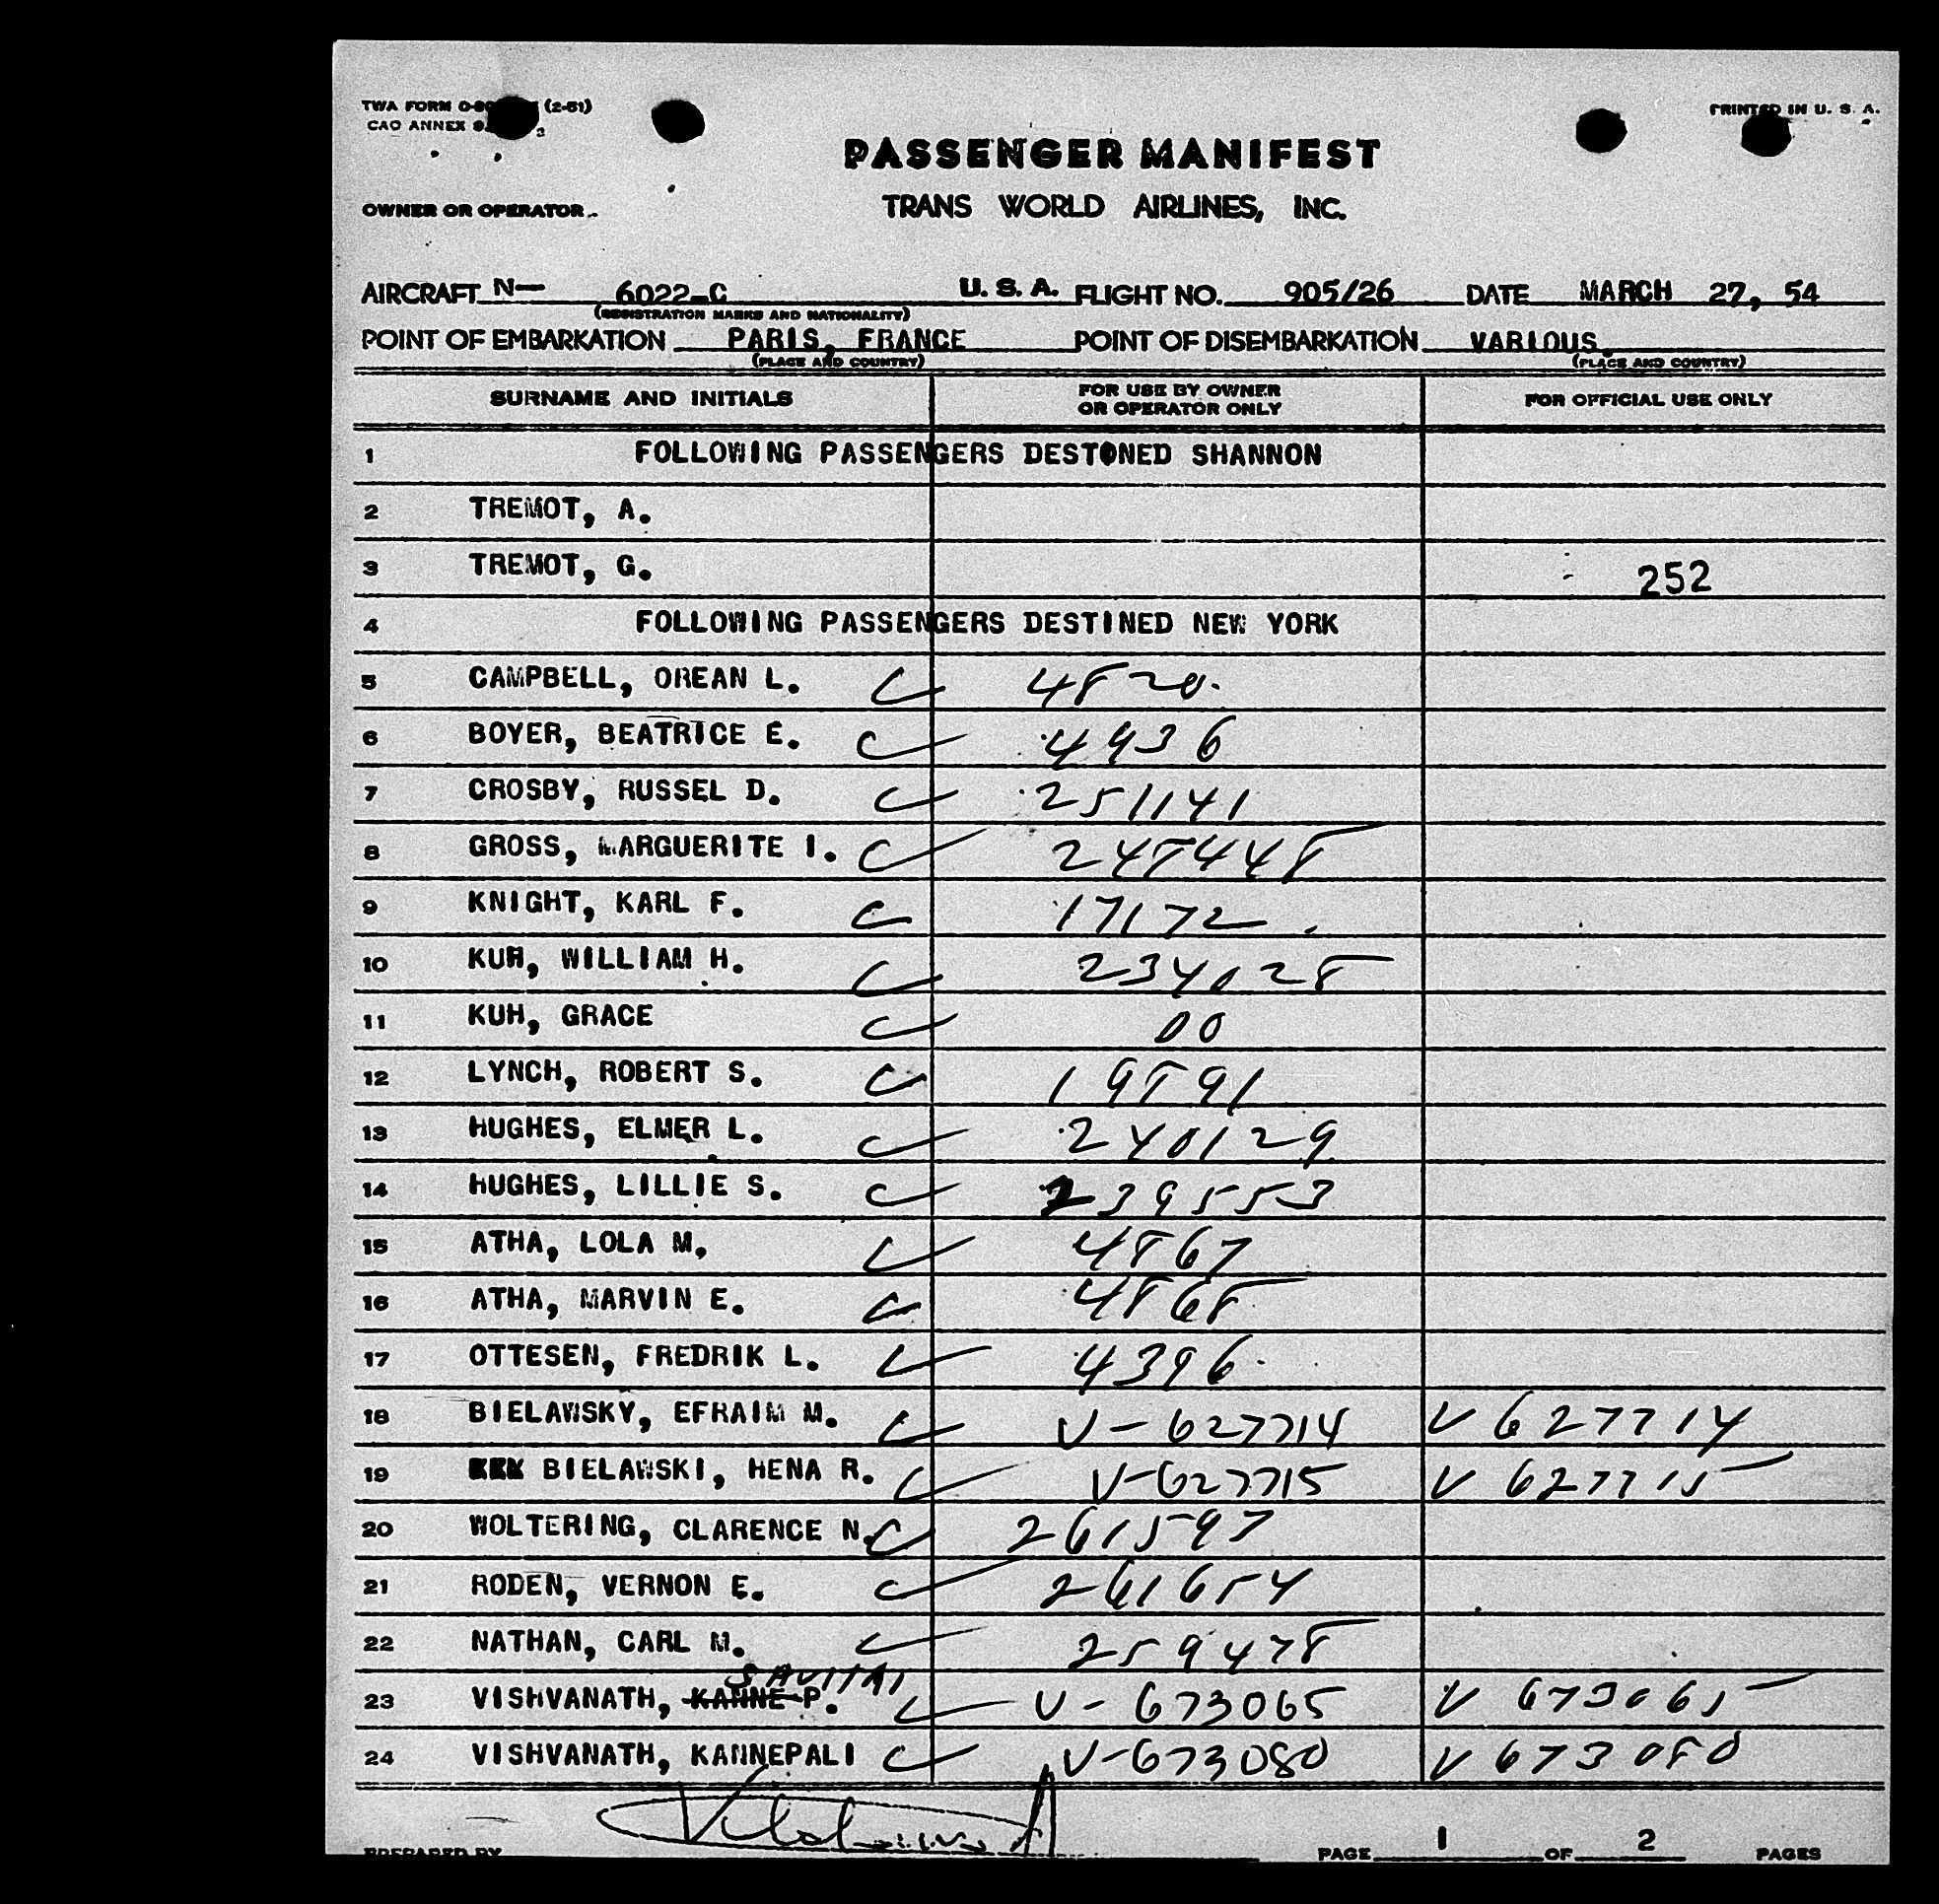 TWA FORM (2-51)
PRINTED IN U. S. A.
CAO ANNEX
PASSENGER MANIFEST
OWNER OR OPERATOR
TRANS WORLD AIRLINES, INC.
AIRCRAFT N— 6022-C U. S. A. FLIGHT NO. 905/26 DATE MARCH 27, 54
(REGISTRATION MARKS AND NATIONALITY)
POINT OF EMBARKATION PARIS, FRANCE POINT OF DISEMBARKATION VARIOUS
(PLACE AND COUNTRY) (PLACE AND COUNTRY)
SURNAME AND INITIALS FOR USE BY OWNER OR OPERATOR ONLY FOR OFFICIAL USE ONLY
1 FOLLOWING PASSENGERS DESTONED SHANNON
2 TREMOT, A.
3 TREMOT, G. 252
4 FOLLOWING PASSENGERS DESTINED NEW YORK
5 CAMPBELL, OREAN L. 4820
6 BOYER, BEATRICE E. 4936
7 CROSBY, RUSSEL D. 251141
8 GROSS, MARGUERITE I. 248448
9 KNIGHT, KARL F. 17172
10 KUH, WILLIAM H. 234028
11 KUH, GRACE 00
12 LYNCH, ROBERT S. 19891
13 HUGHES, ELMER L. 240129
14 HUGHES, LILLIE S. 239553
15 ATHA, LOLA M. 4867
16 ATHA, MARVIN E. 4868
17 OTTESEN, FREDRIK L. 4396
18 BIELAWSKY, EFRAIM M. V-627714 V 627714
19 BIELAWSKI, HENA R. V-627715 V 627715
20 WOLTERING, CLARENCE N. 261597
21 RODEN, VERNON E. 261654
22 NATHAN, CARL M. 259478
SAVITAI
23 VISHVANATH, KANNE P. V-673065 V 673065
24 VISHVANATH, KANNEPALI V-673080 V 673080
PREPARED BY PAGE 1 OF 2 PAGES